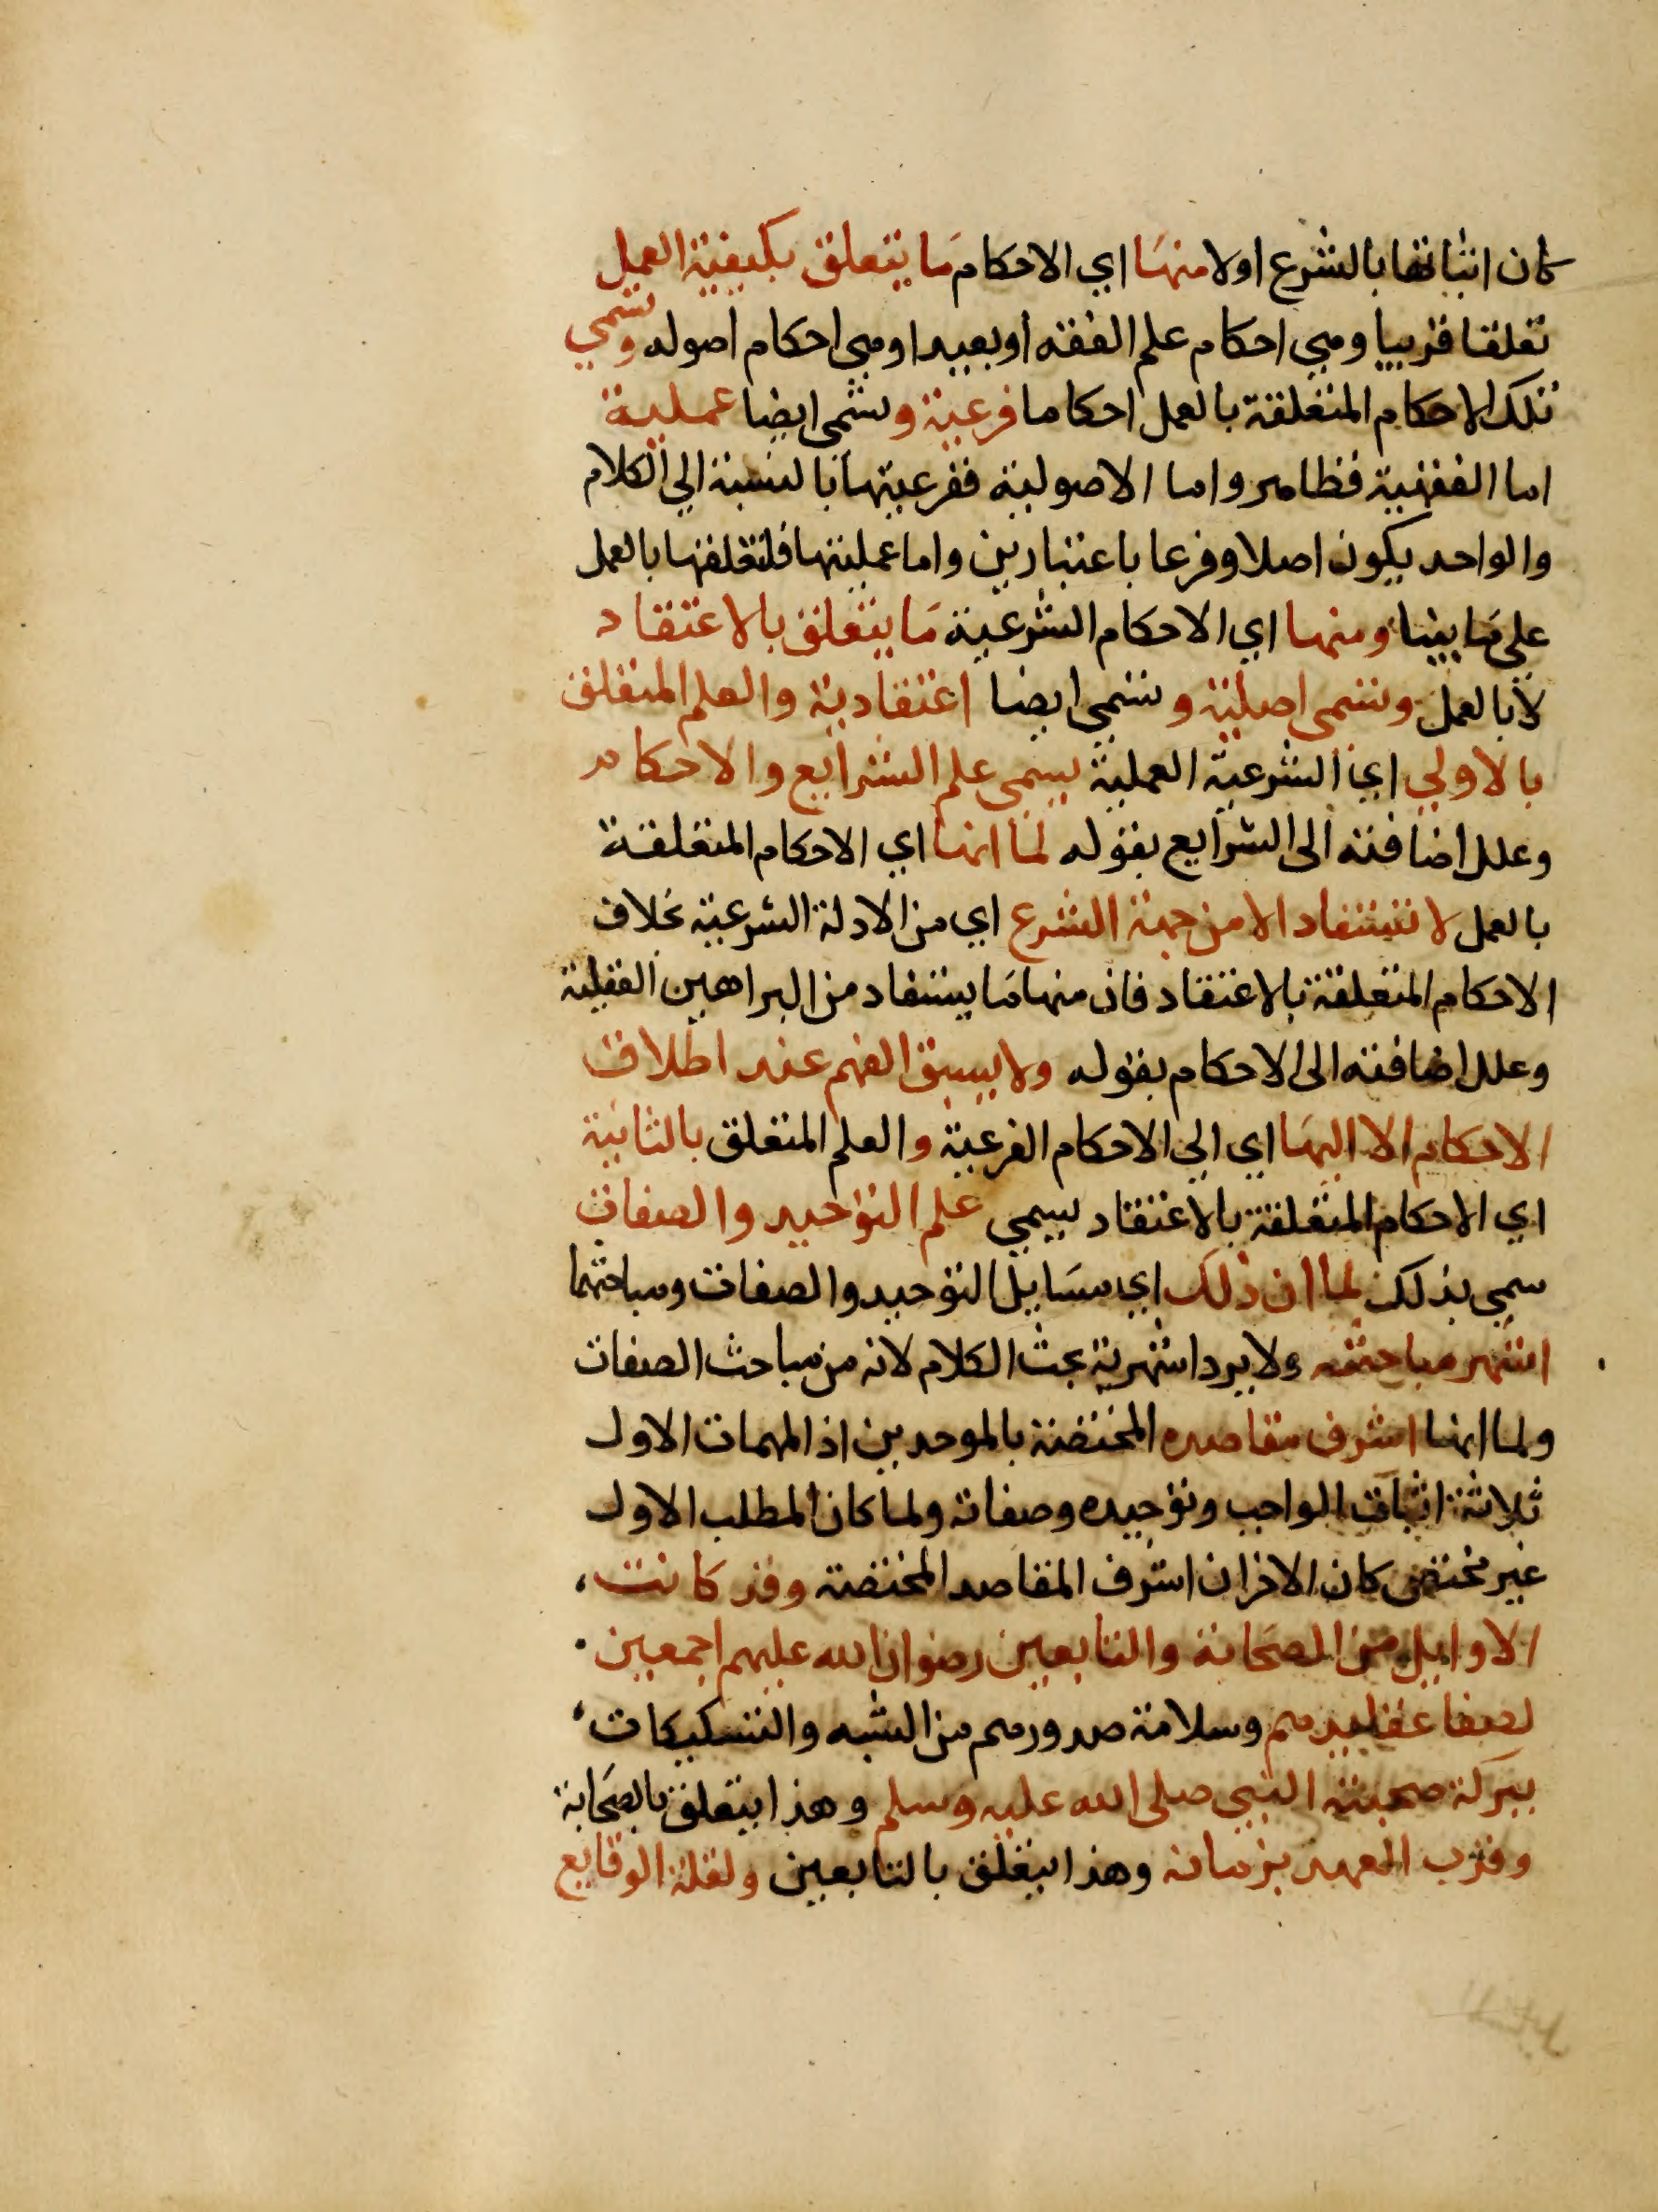 كان اثباتها بالشرع اولا منها اي الاحكام ما يتعلق بكيفية العمل
تعلقا قريبا وهي احكام علم الفقه او بعيدا وهي احكام اصوله وتسمي
تلك الاحكام المتعلقة بالعمل احكاما فرعية وتسمى ايضا عملية
اما الفقهية فظاهر واما الاصولية ففرعيتها بالنسبة الي الكلام
والواحد يكون اصلا وفرعا باعتبارين واما عمليتها فلتعلقها بالعمل
علي ما بينا ومنها اي الاحكام الشرعية ما يتعلق بالاعتقاد
لا بالعمل وتسمى اصلية وتسمي ايضا اعتقادية والعلم المتعلق
بالاولي اي الشرعية العملية يسمى علم الشرايع والاحكام
وعلل اضافته الى الشرايع بقوله لما انها اي الاحكام المتعلقة
بالعمل لا تستفاد الا من جهة الشرع اي من الادلة الشرعية بخلاف
الاحكام المتعلقة بالاعتقاد فان منها ما يستفاد من البراهين العقلية
وعلل اضافته الى الاحكام بقوله ولا يسبق الفهم عند اطلاق
الاحكام الا اليها اي الي الاحكام الفرعية والعلم المتعلق بالثانية
اي الاحكام المتعلقة بالاعتقاد يسمي علم التوحيد والصفات
سمي بذلك لما ان ذلك اي مسايل التوحيد والصفات ومباحثهما
اشهر مباحثه ولا يرد اشهرية بحث الكلام لانه من مباحث الصفات
ولما انها اشرف مقاصده المختصة بالموحدين اذ المهمات الاول
ثلاثة اثبات الواجب وتوحيده وصفاته ولما كان المطلب الاول
غير مختص كان الاخران اشرف المقاصد المختصة وقد كانت
الاوايل من الصحابة والتابعين رضوان الله عليهم اجمعين
لصفا عقايدهم وسلامة صدورهم من الشبه والتشكيكات
ببركة صحبة النبي صلى الله عليه وسلم وهذا يتعلق بالصحابة
وقرب العهد بزمانه وهذا يتعلق بالتابعين ولقلة الوقايع